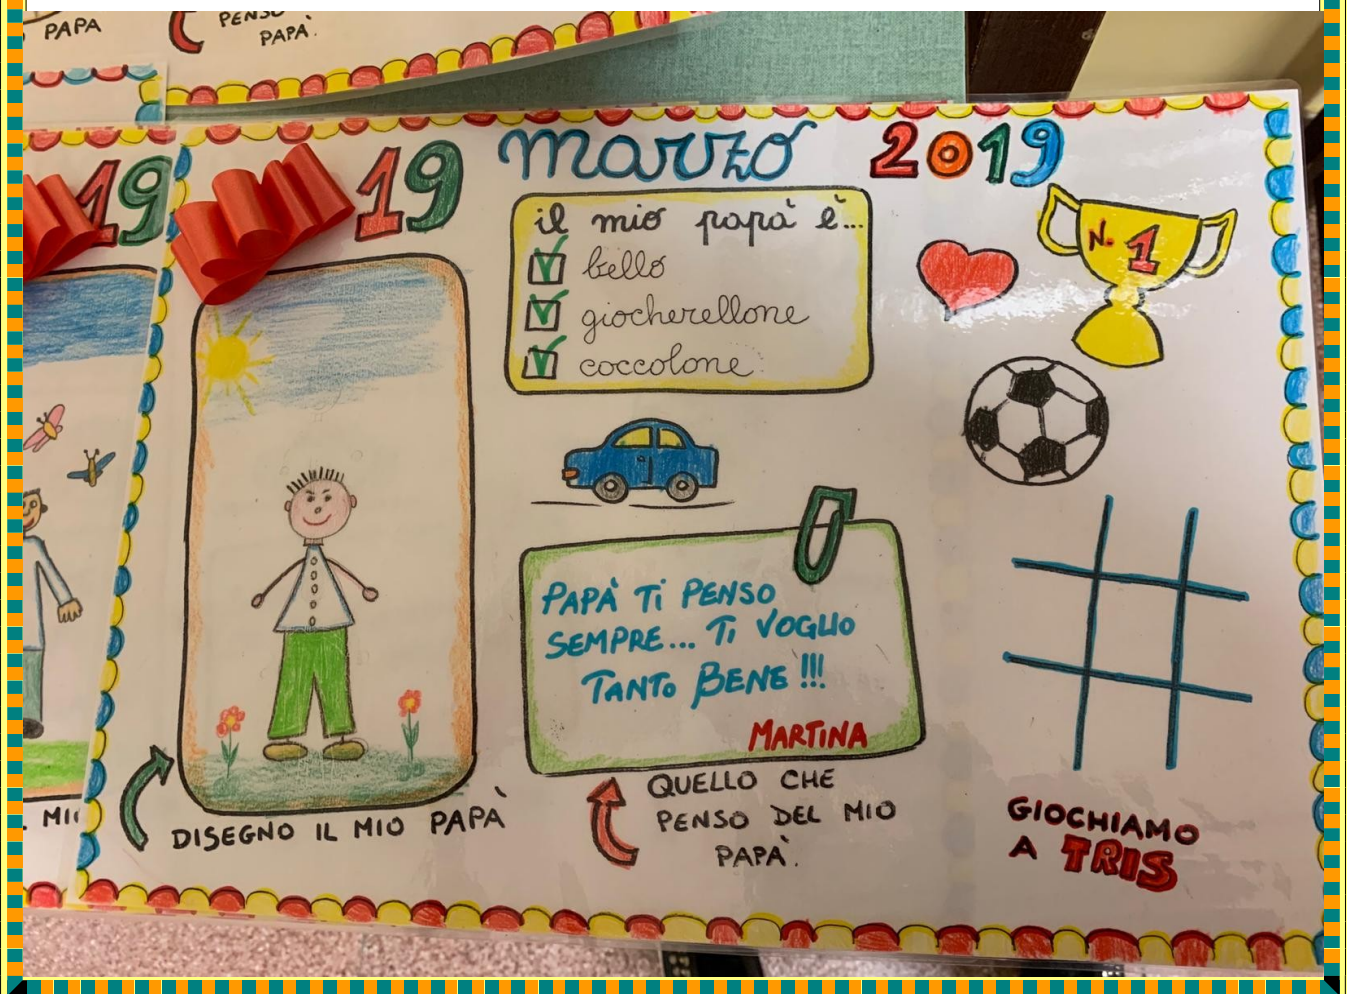 PAPÀ
PENSO
PAPÀ.
19
19 marzo 2019
il mio papà è...
bello
giocherellone
coccolone
N. 1
PAPÀ TI PENSO
SEMPRE... TI VOGLIO
TANTO BENE!!!
MARTINA
DISEGNO IL MIO PAPÀ
QUELLO CHE
PENSO DEL MIO
PAPÀ.
GIOCHIAMO
A TRIS